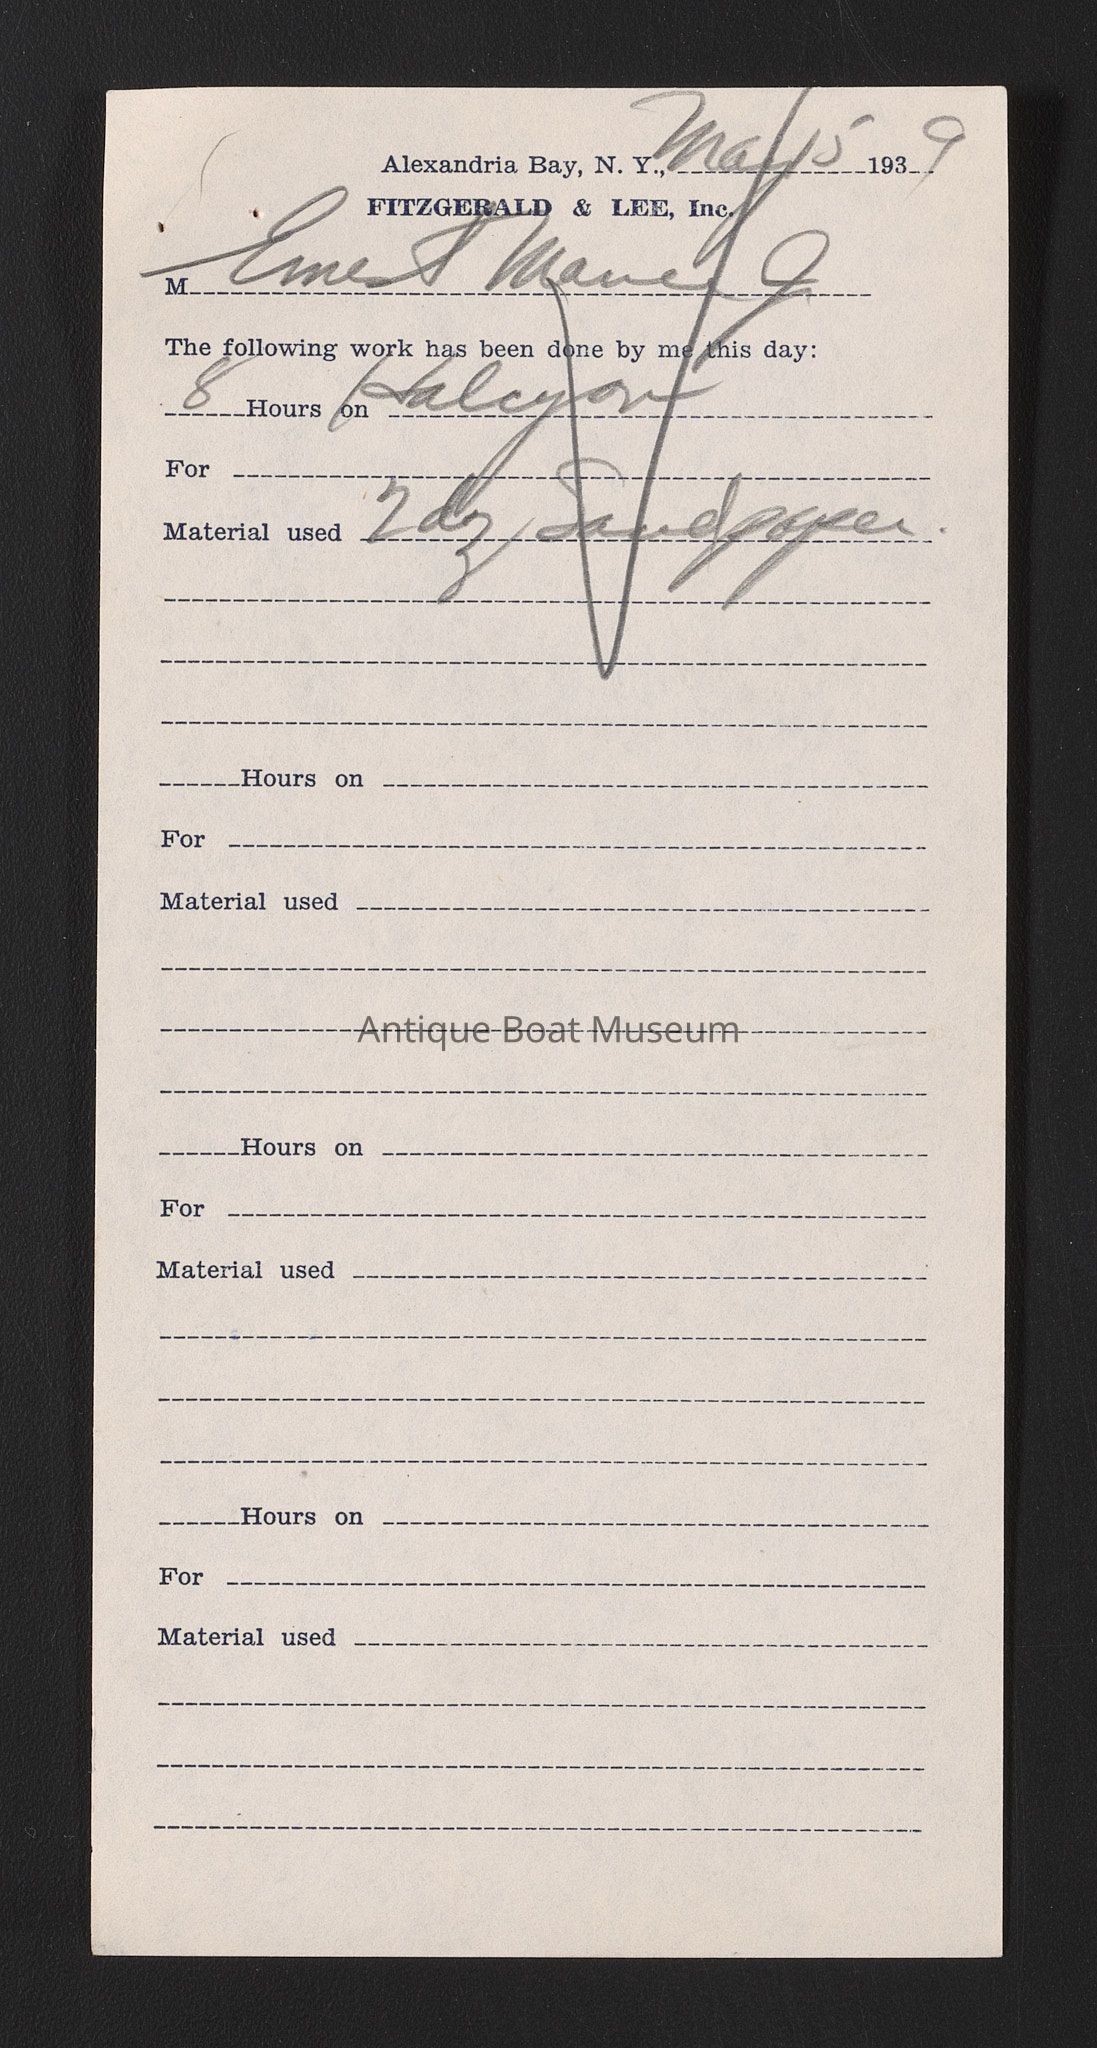 Alexandria Bay, N. Y., May 15 1939
FITZGERALD & LEE, Inc.
M Ernest
The following work has been done by me this day:
8 Hours on Halcyon
For
Material used 2 dz Sandpaper.
Hours on
For
Material used
Antique Boat Museum
Hours on
For
Material used
Hours on
For
Material used